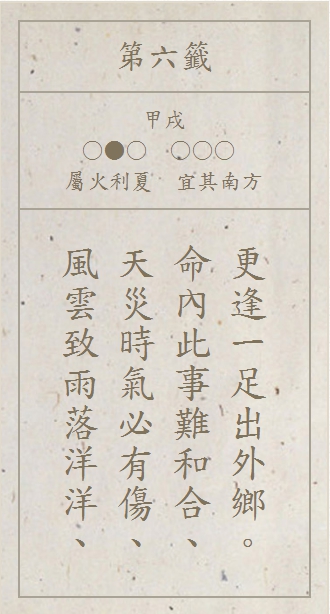 第六籤
甲戌
○●○ ○○○
屬火利夏 宜其南方
風雲致雨落洋洋、
天災時氣必有傷、
命內此事難和合、
更逢一足出外鄉。